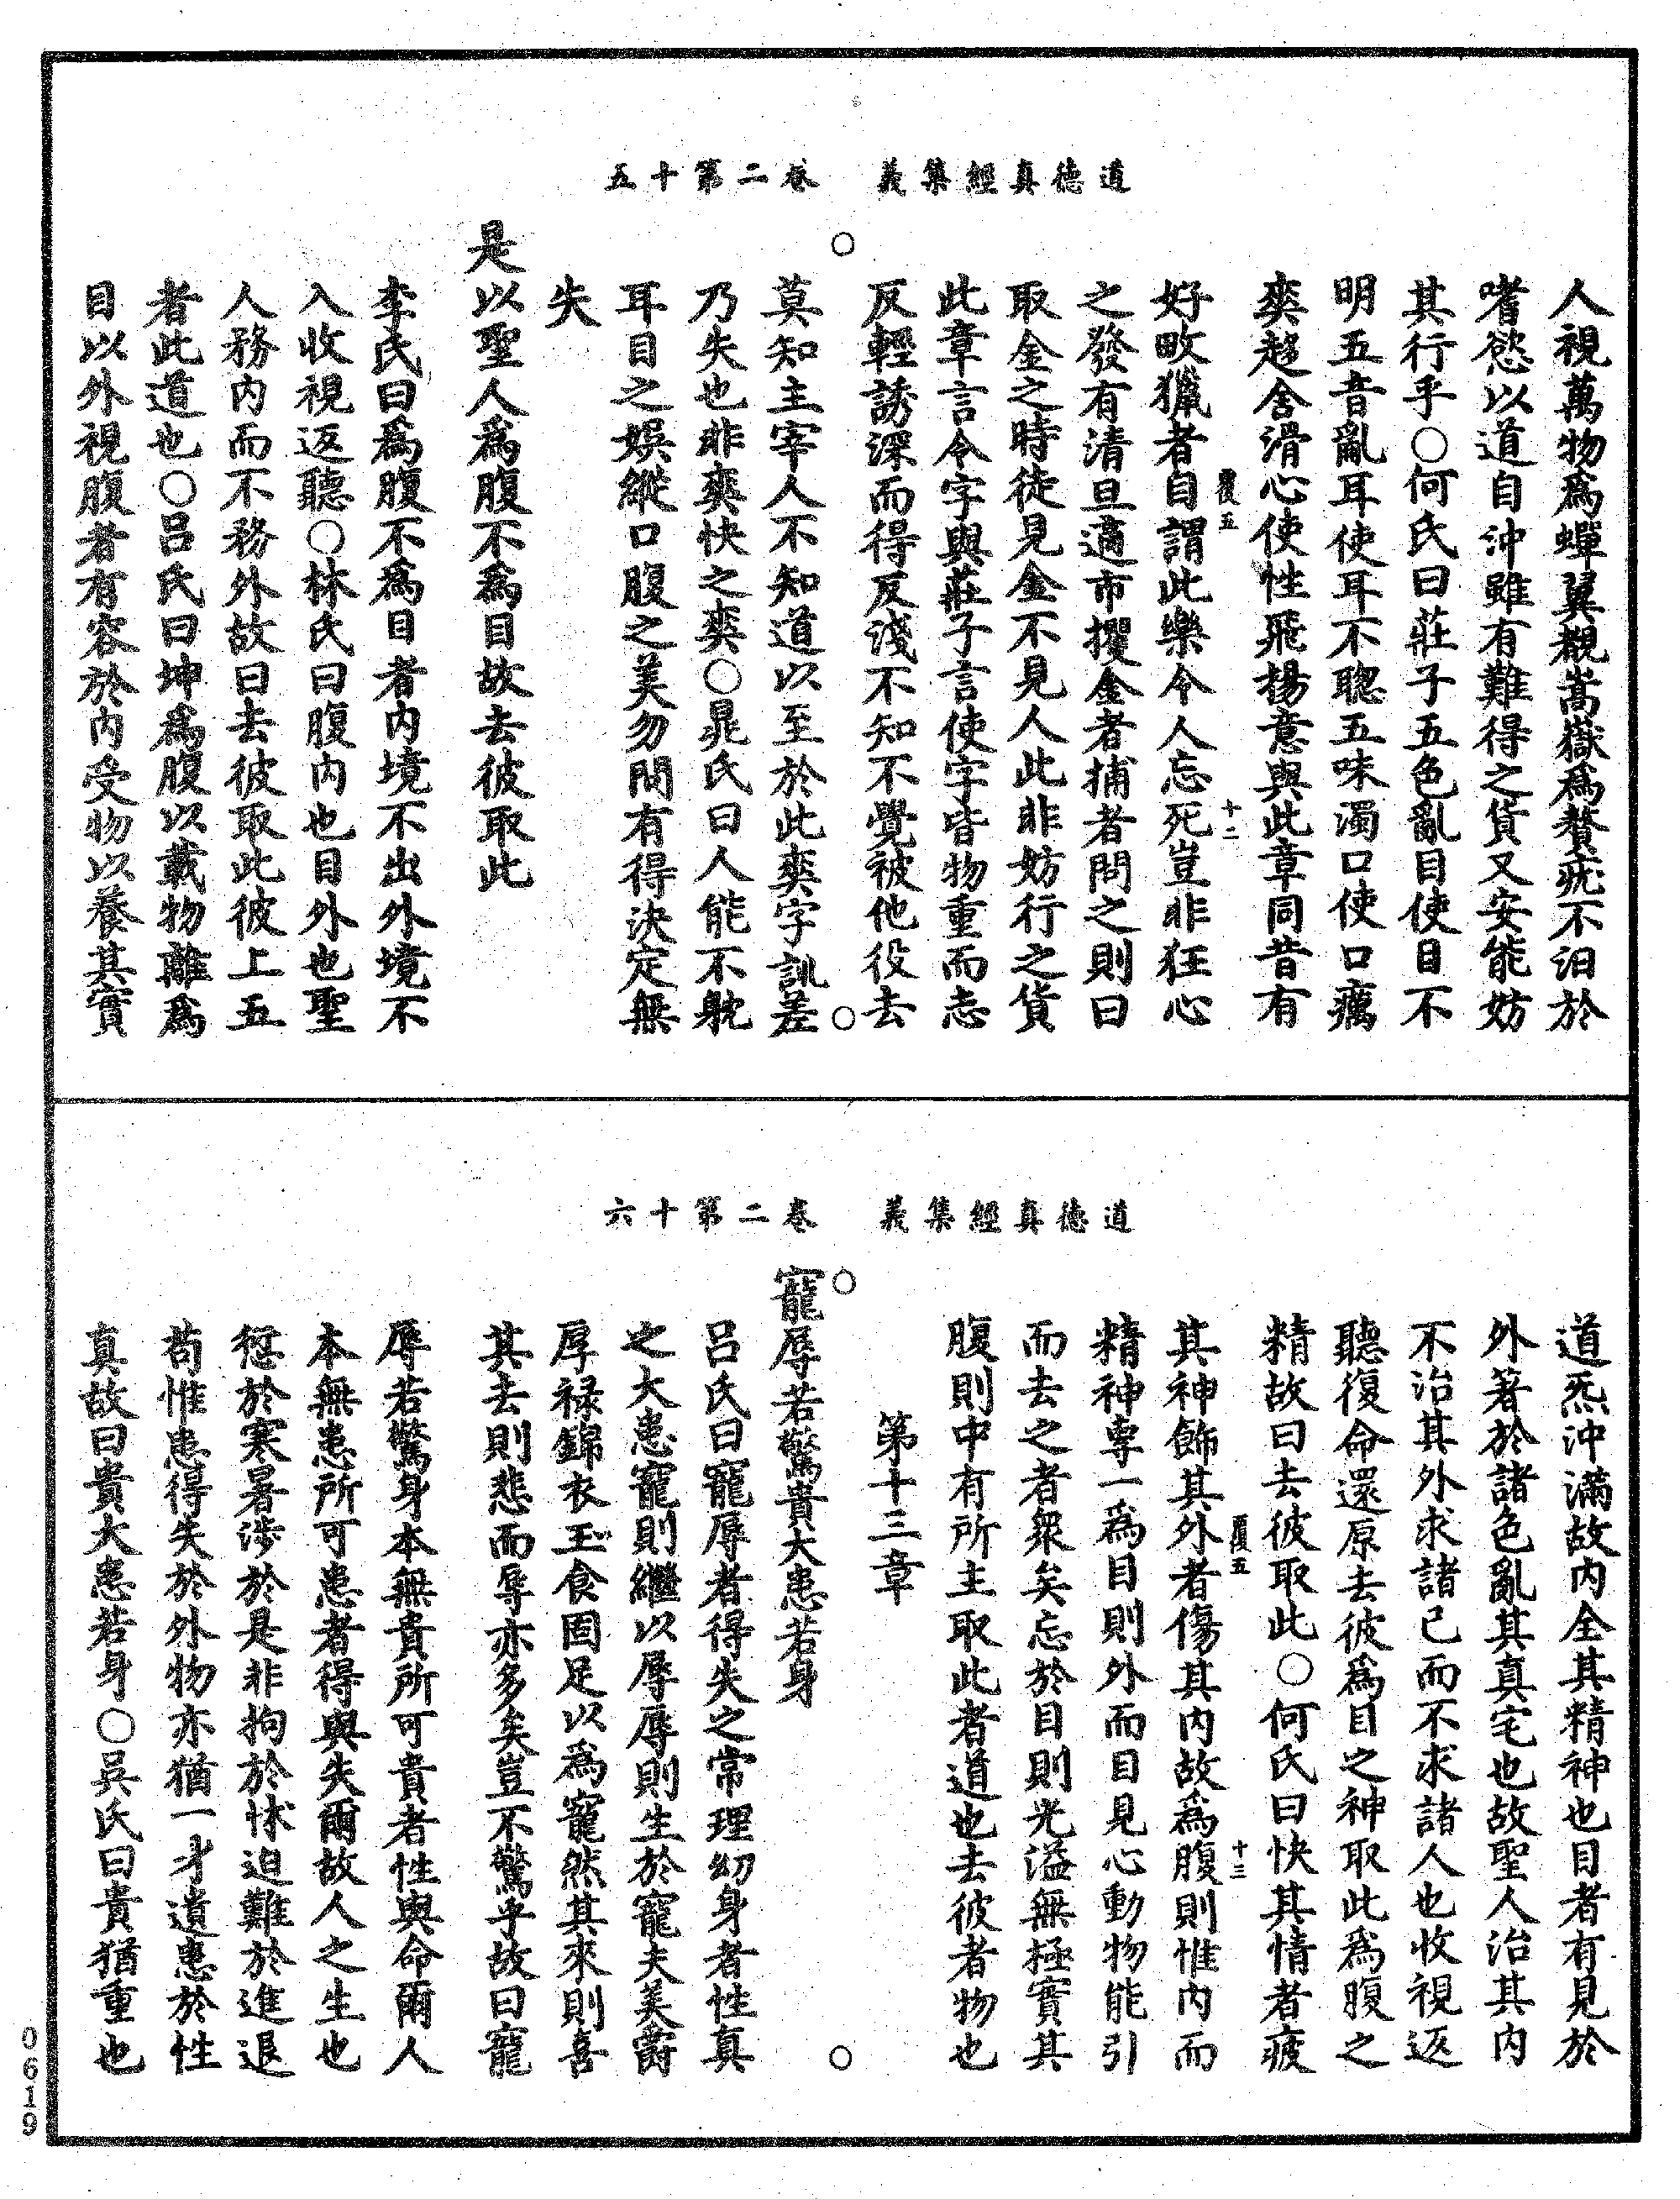 道德真經集義　卷二第十五
人視萬物爲蟬翼觀嵩嶽爲贅疣不汩於
嗜慾以道自沖雖有難得之貨又安能妨
其行乎○何氏曰莊子五色亂目使目不
明五音亂耳使耳不聰五味濁口使口癘
爽趍舍滑心使性飛揚意與此章同昔有
覆五　十二
好畋獵者自謂此樂令人忘死豈非狂心
之發有清旦適市攫金者捕者問之則曰
取金之時徒見金不見人此非妨行之貨
此章言令字與莊子言使字皆物重而志
反輕誘深而得反淺不知不覺被他役去
莫知主宰人不知道以至於此爽字訓差
乃失也非爽快之爽○晁氏曰人能不躭
耳目之娛縱口腹之美勿問有得決定無
失
是以聖人爲腹不爲目故去彼取此
李氏曰爲腹不爲目者內境不出外境不
入收視返聽○林氏曰腹內也目外也聖
人務內而不務外故曰去彼取此彼上五
者此道也○呂氏曰坤爲腹以載物離爲
目以外視腹者有容於內受物以養其實
道德真經集義　卷二第十六
道炁沖滿故內全其精神也目者有見於
外著於諸色亂其真宅也故聖人治其內
不治其外求諸己而不求諸人也收視返
聽復命還原去彼爲目之神取此爲腹之
精故曰去彼取此○何氏曰快其情者疲
覆五　十三
其神飾其外者傷其內故爲腹則惟內而
精神専一爲目則外而目見心動物能引
而去之者衆矣忘於目則光溢無極實其
腹則中有所主取此者道也去彼者物也
第十三章
寵辱若驚貴大患若身
呂氏曰寵辱者得失之常理幻身者性真
之大患寵則繼以辱辱則生於寵夫美爵
厚祿錦衣玉食固足以爲寵然其來則喜
其去則悲而辱亦多矣豈不驚乎故曰寵
辱若驚身本無貴所可貴者性與命爾人
本無患所可患者得與失爾故人之生也
愆於寒暑涉於是非拘於怵迫難於進退
苟惟患得失於外物亦猶一身遺患於性
真故曰貴大患若身○吳氏曰貴猶重也
0619